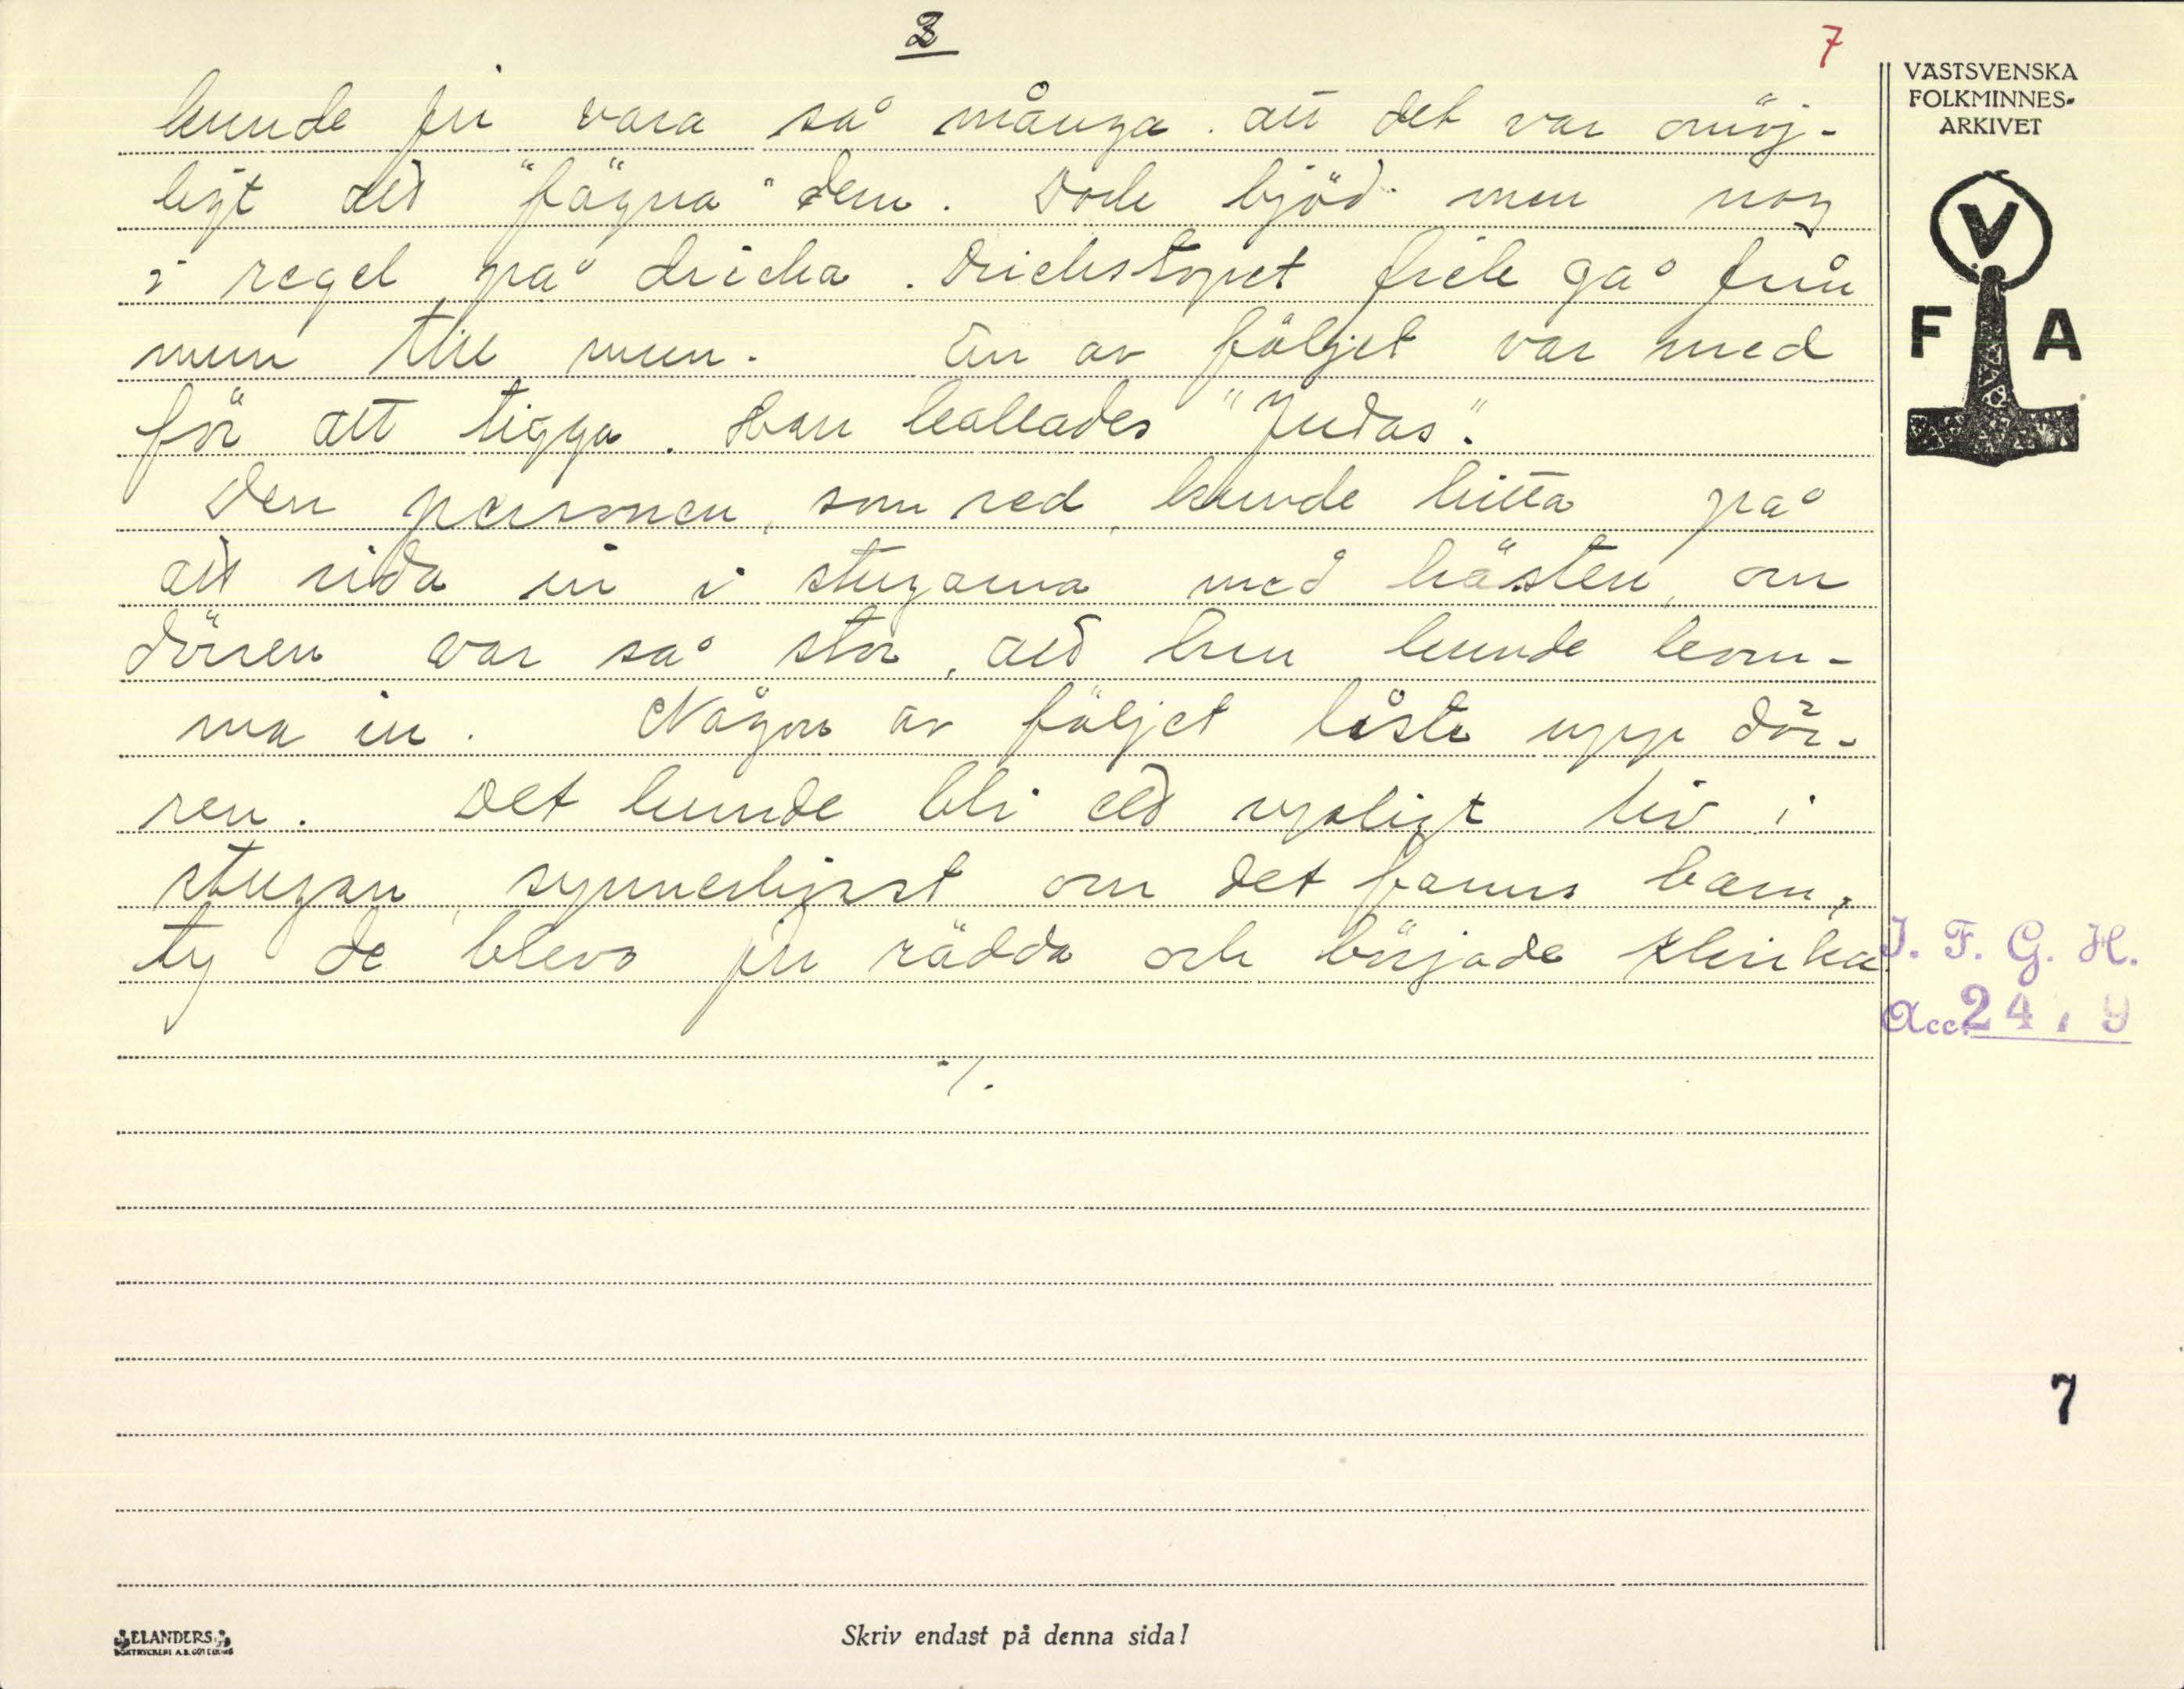 3
7
kunde ju vara så många. att det var omöj-
ligt att "fägna" dem. Dock bjöd man nog
i regel på dricka. Drickstopet fick gå från
mun till mun. En av följet var med
för att tigga. Han kallades "Judas".
Den personen, som red, kunde hitta på
att rida in i stugorna med hästen, om
dörren var så stor, att han kunde kom-
ma in. Någon av följet låste upp dör-
ren. Det kunde bli ett rysligt liv i
stugan, synnerligast om det fanns barn,
ty de blevo ju rädda och började skrika
./.
VÄSTSVENSKA
FOLKMINNES-
ARKIVET
V
F A
I. F. G. H.
Acc. 24, 9
7
ELANDERS
BOKTRYCKERI A.B. GÖTEBORG
Skriv endast på denna sida!